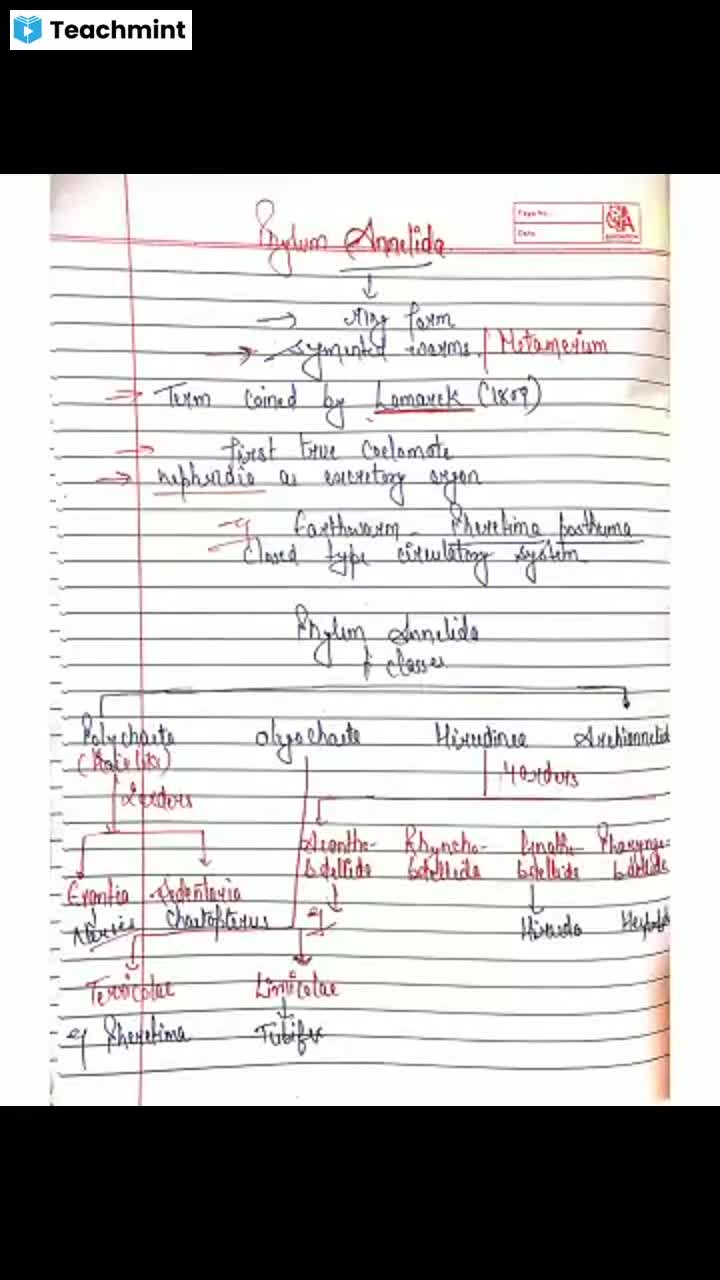 Teachmint
Page No.
Date
Phylum Annelida
→ ring form
→ Symented worms / Metamerium
⇒ Term coined by Lamarck (1809)
→ first true Coelomate
→ nephridia as excretory organ
eg Earthworm - Pheretima posthuma
Closed type circulatory system
Phylum Annelida
classes
Polychaeta oligochaete Hirudinea Archiannelid
4 orders
2 orders
Acantho- Rhyncho- Gnatho- Pharyngo-
bdellida bdellida bdellida bdellida
Errantia Sedentaria
Nereis Chaetopterus eg Hirudo
Terricolae Limicolae
eg Pheretima Tubifex